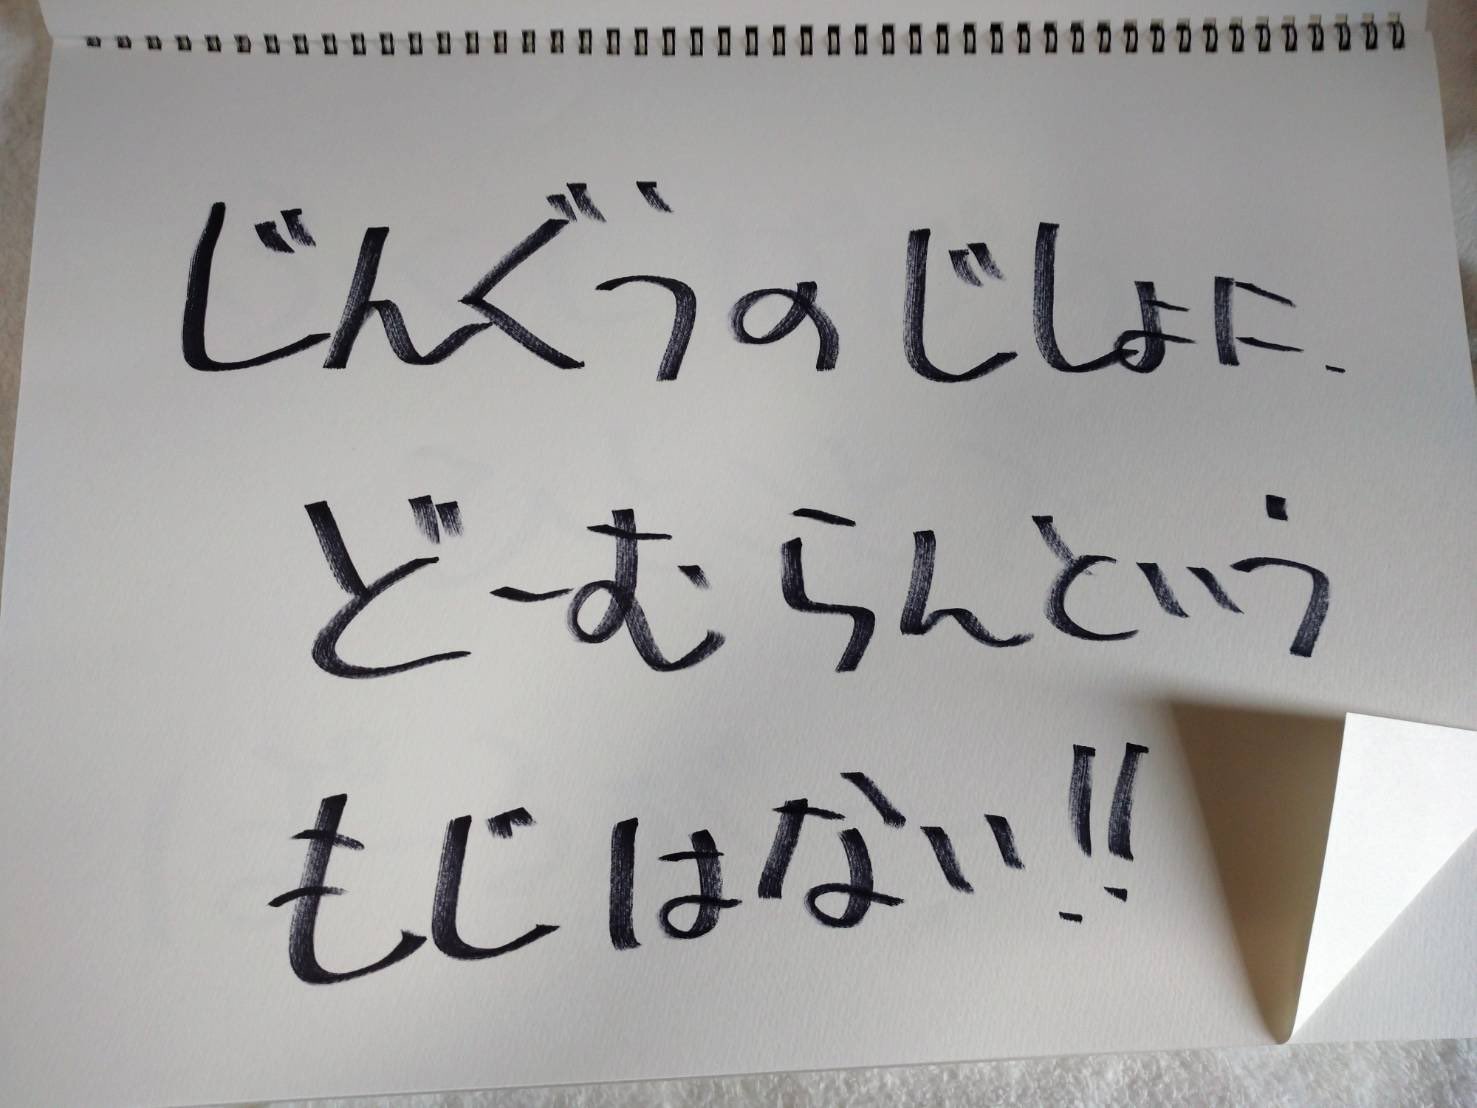 じんぐうのじしょに、
どーむらんという
もじはない!!